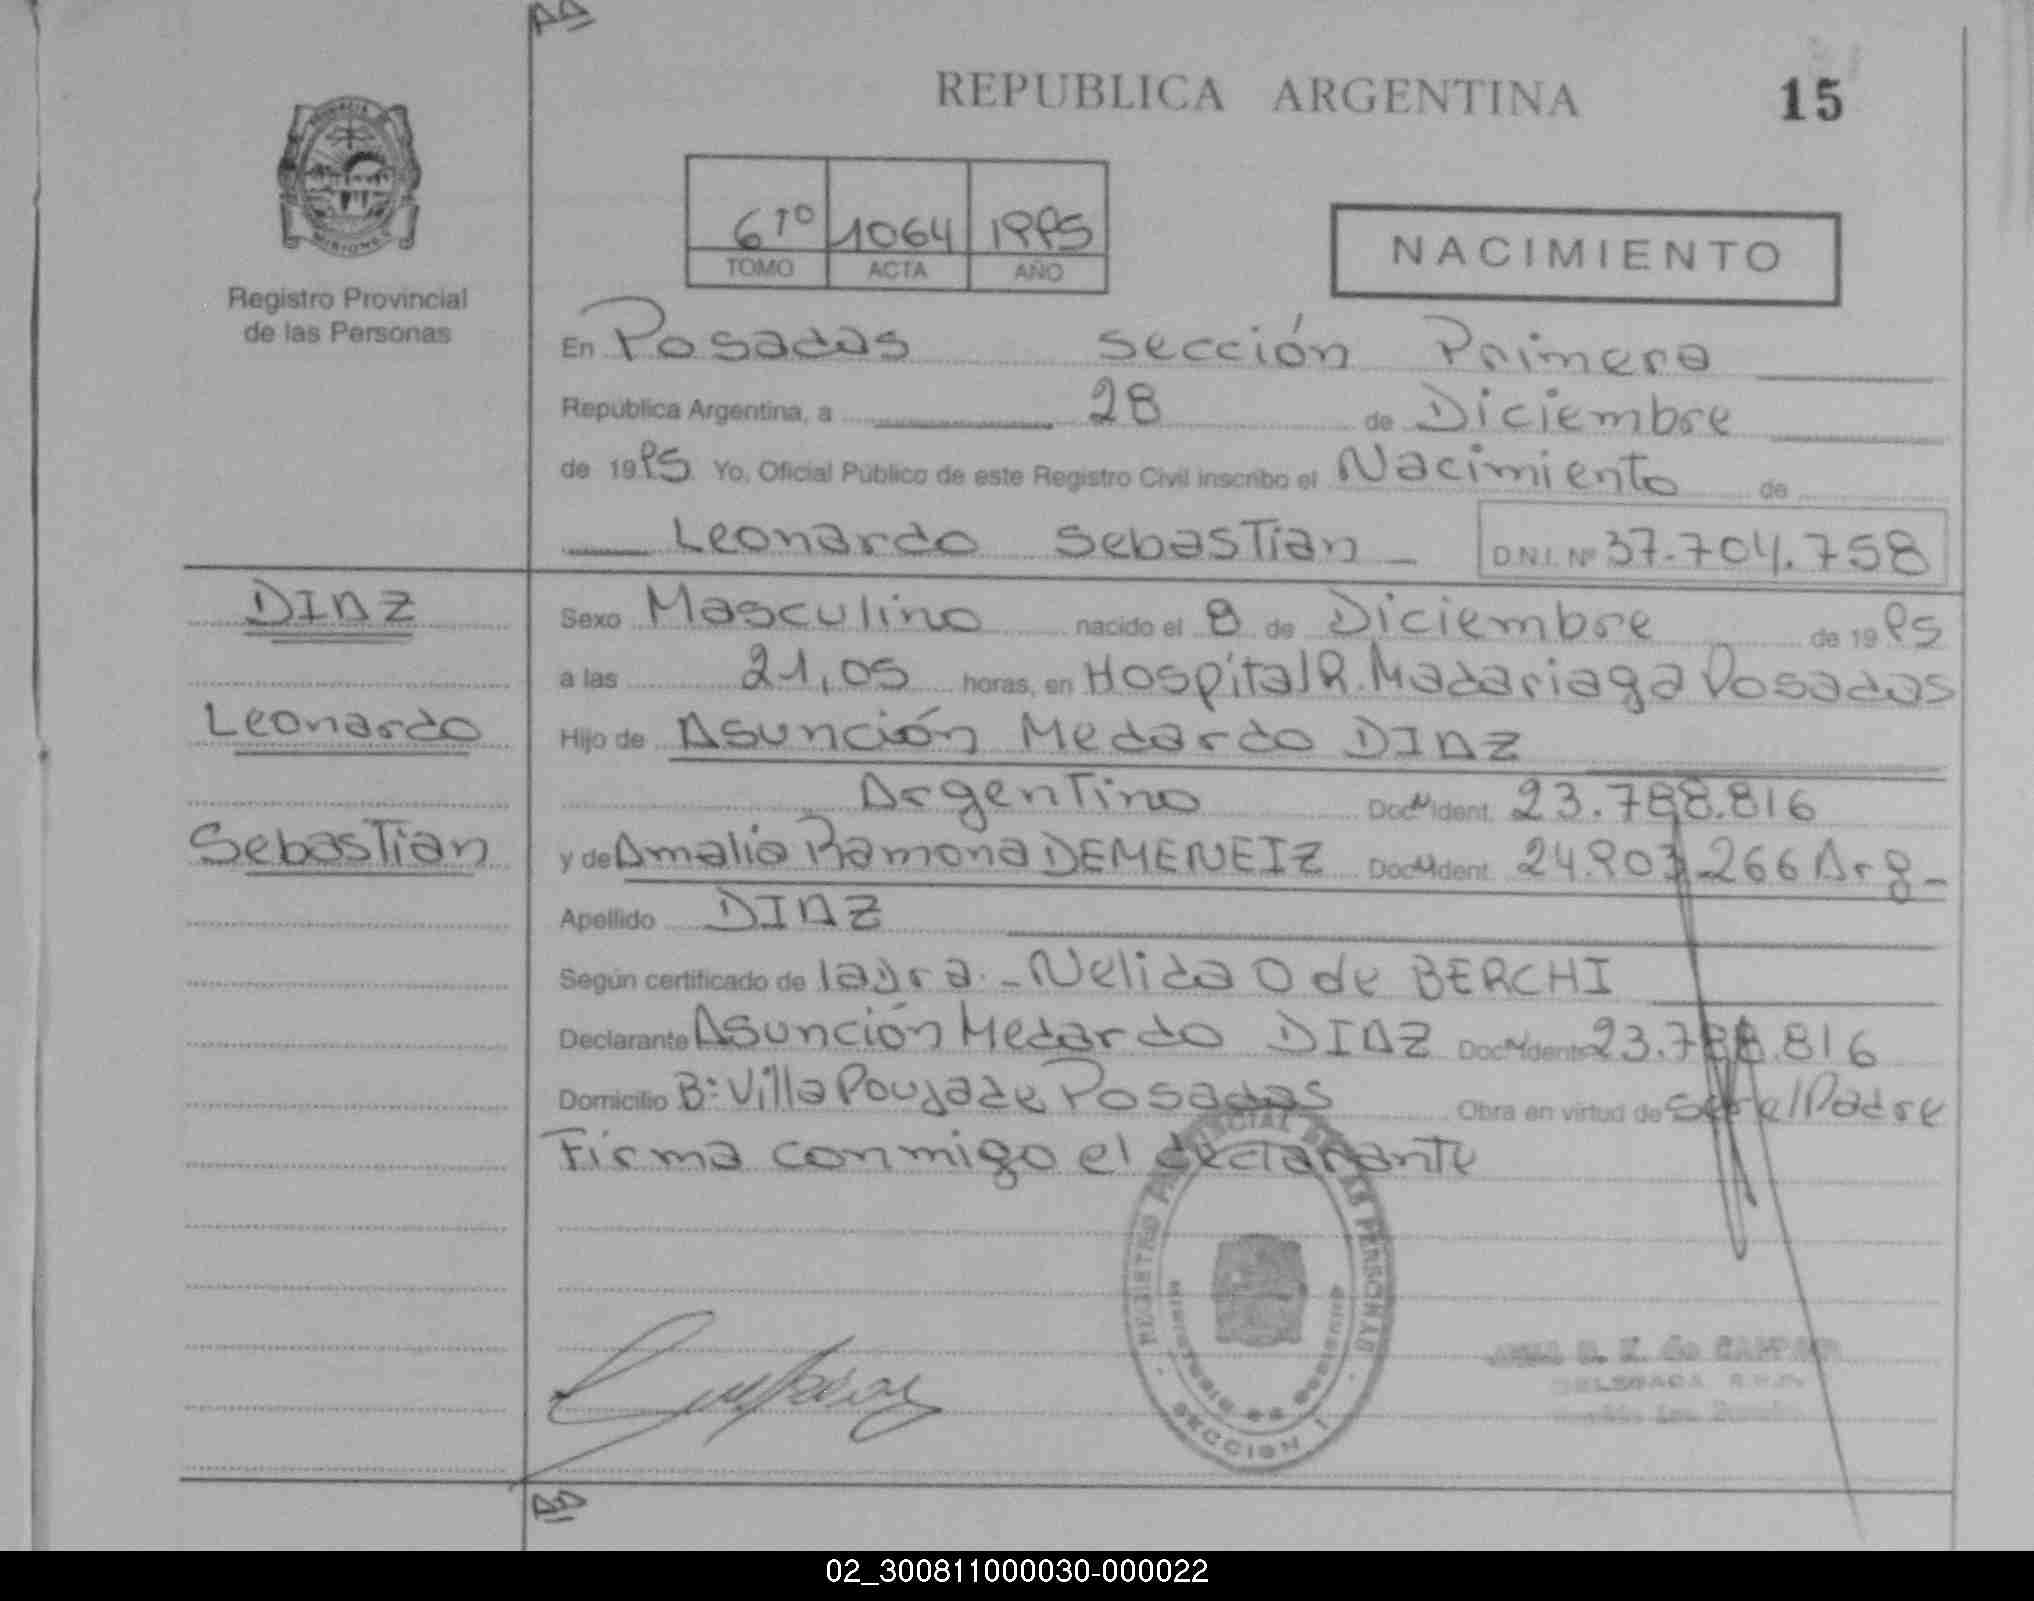 REPUBLICA ARGENTINA 15
PROVINCIA DE
MISIONES
Registro Provincial
de las Personas
6to 1064 1995
TOMO ACTA AÑO
NACIMIENTO
En Posadas sección Primera
República Argentina, a 28 de Diciembre
de 1995 Yo, Oficial Público de este Registro Civil inscribo el Nacimiento de
Leonardo Sebastian D.N.I. Nº 37.704.758
DIAZ
Leonardo
Sebastian
Sexo Masculino nacido el 8 de Diciembre de 1995
a las 21,05 horas, en Hospital R. Madariaga Posadas
Hijo de Asunción Medardo DIAZ
Argentino Doc. Ident. 23.788.816
y de Amalia Ramona DEMENEIZ Doc. Ident. 24.903.266 Arg
Apellido DIAZ
Según certificado de la dra. Nelida O de BERCHI
Declarante Asunción Medardo DIAZ Doc. Ident. 23.788.816
Domicilio Bº Villa Poujade Posadas Obra en virtud de ser el Padre
Firma conmigo el declarante
REGISTRO PROVINCIAL DE LAS PERSONAS
SECCION 1
02_300811000030-000022